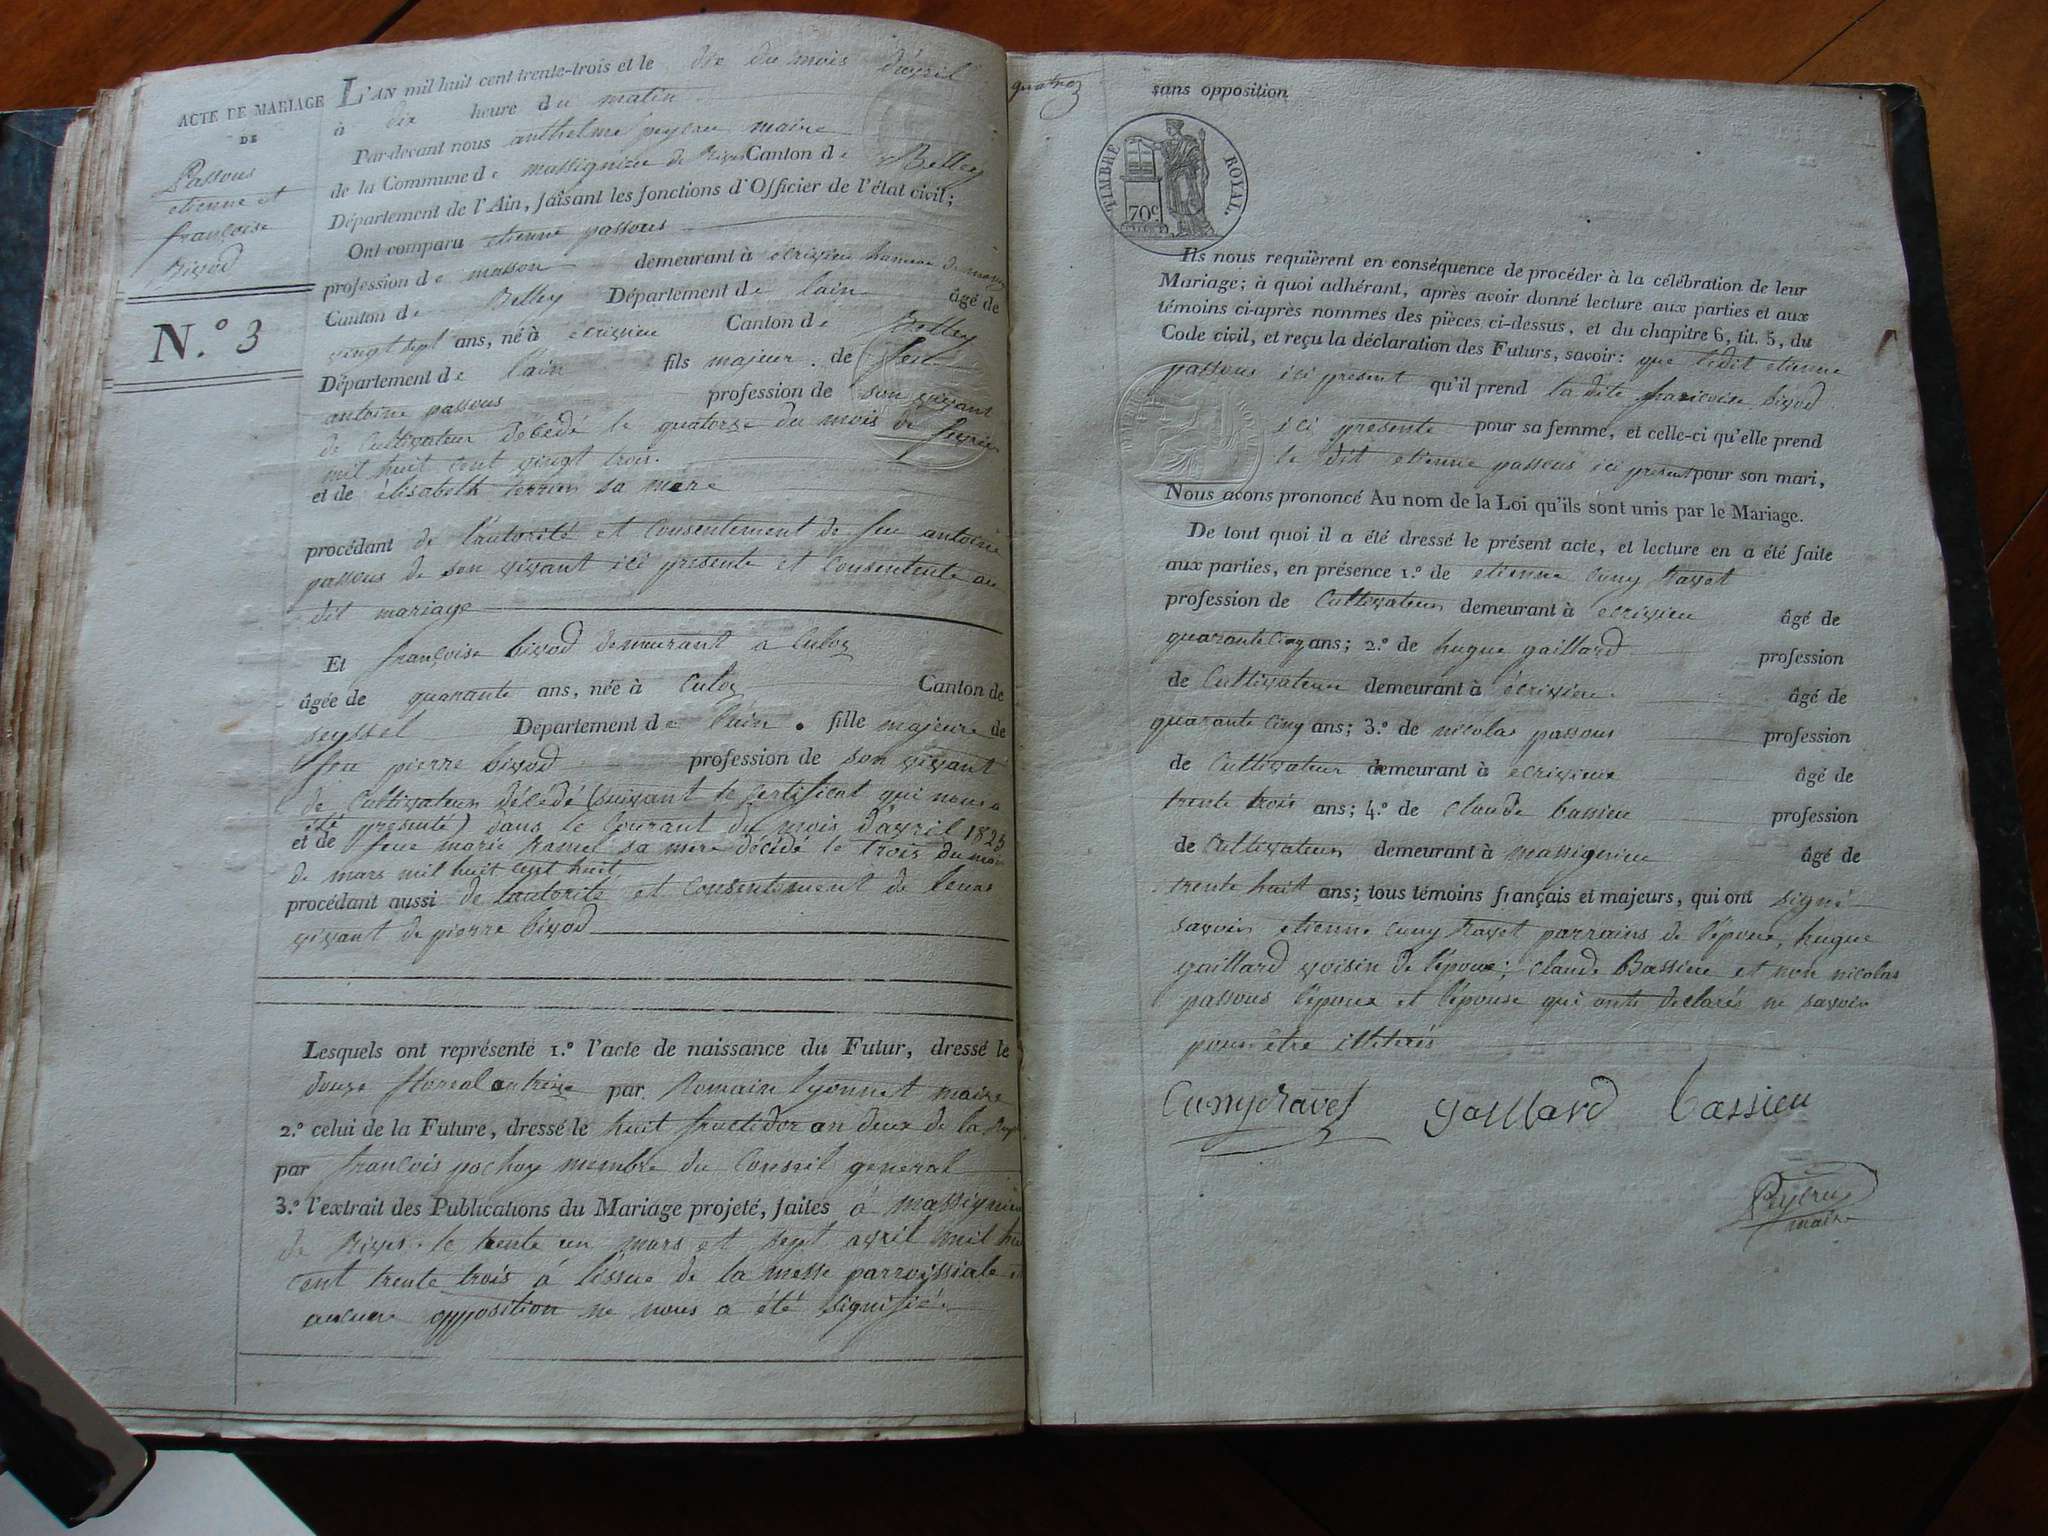 ACTE DE MARIAGE
DE
Passous
etienne et
françoise
Bivod
N.° 3
L'AN mil huit cent trente-trois et le dix du mois d'avril
à dix heure du matin
Par-devant nous anthelme peyzeu maire
de la Commune de massignieu de Rives Canton de Belley
Département de l'Ain, faisant les fonctions d'Officier de l'état civil;
Ont comparu etienne passous
profession de masson demeurant à ecrivieu hameau de
Canton de Belley Département de lain âgé de
vingt sept ans, né à ecrivieu Canton de Belley
Département de lain fils majeur de feu
antoine passous profession de son vivant
de Cultivateur décédé le quatorze du mois de fevrier
mil huit cent vingt trois.
et de élisabeth terrier sa mère
procédant de l'autorité et Consentement de feu antoine
passous de son vivant ici presente et Consentente au
dit mariage
Et françoise bivod demeurant a Culoz
âgée de quarante ans, née à Culoz Canton de
seyssel Département de lain fille majeure de
feu pierre bivod profession de son vivant
de Cultivateur décédé (suivant le certificat qui nous a
été presenté) dans le Courant du mois d'avril 1823
et de feue marie hamel sa mere décédé le trois du mois
de mars mil huit cent huit
procédant aussi de lautorité et Consentement de leurs
vivant de pierre bivod
Lesquels ont représenté 1.° l'acte de naissance du Futur, dressé le
douze floreal an treize par Romain lyonnet maire
2.° celui de la Future, dressé le huit fructidor an deux de la
par françois pochoy membre du Conseil general
3.° l'extrait des Publications du Mariage projeté, faites à massignieu
de Rives le trente un mars et sept avril mil hui
cent trente trois à l'issue de la messe parroissiale et
aucune opposition ne nous a été signifiée
sans opposition
TIMBRE ROYAL.
70c
Ils nous requièrent en conséquence de procéder à la célébration de leur
Mariage; à quoi adhérant, après avoir donné lecture aux parties et aux
témoins ci-après nommés des pièces ci-dessus, et du chapitre 6, tit. 5, du
Code civil, et reçu la déclaration des Futurs, savoir: que ledit etienne
passous ici present qu'il prend la dite françoise bivod
ici presente pour sa femme, et celle-ci qu'elle prend
le dit etienne passous ici present pour son mari,
Nous avons prononcé Au nom de la Loi qu'ils sont unis par le Mariage.
De tout quoi il a été dressé le présent acte, et lecture en a été faite
aux parties, en présence 1.° de etienne Cuny Ravet
profession de Cultivateur demeurant à ecrivieu âgé de
quarante Cinq ans; 2.° de hugue gaillard profession
de Cultivateur demeurant à écrivieu âgé de
quarante Cinq ans; 3.° de nicolas passous profession
de Cultivateur demeurant à ecrivieu âgé de
trente trois ans; 4.° de claude bassieu profession
de Cultivateur demeurant à massignieu âgé de
trente huit ans; tous témoins français et majeurs, qui ont signé
savoir etienne cuny Ravet parrains de l'époux, hugue
gaillard voisin de l'époux; claude Bassieu et non nicolas
passous l'epoux et l'épouse qui ont declarés ne savoir
pour être illiterés
Cunydravet gaillard bassieu
Peyzeu
maire